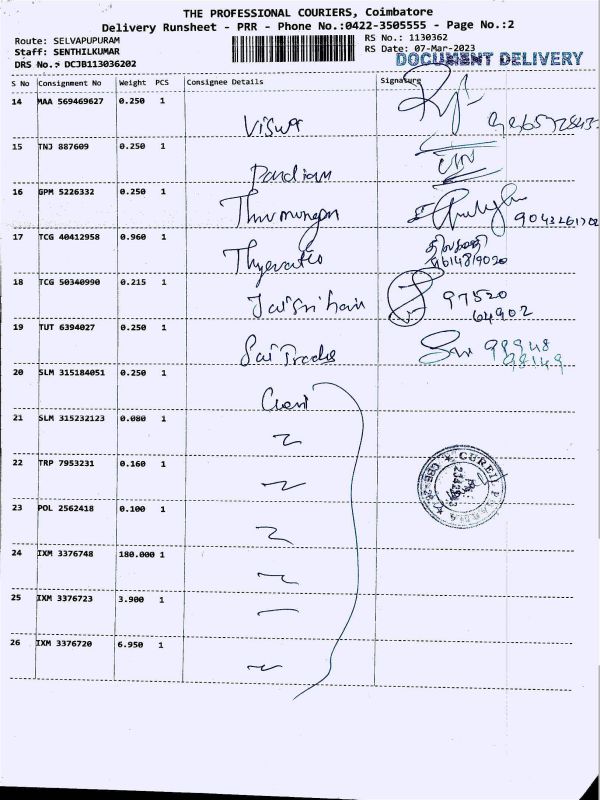 THE PROFESSIONAL COURIERS, Coimbatore
Delivery Runsheet - PRR - Phone No.:0422-3505555 - Page No.:2
Route: SELVAPUPURAM
Staff: SENTHILKUMAR
DRS No.: DCJB113036202
RS No.: 1130362
RS Date: 07-Mar-2023
DOCUMENT DELIVERY
S No Consignment No Weight PCS Consignee Details Signature
14 MAA 569469627 0.250 1 Viswa
15 TNJ 887609 0.250 1 Pandian
16 GPM 5226332 0.250 1 Thirumurugan
17 TCG 40412958 0.960 1
18 TCG 50340990 0.215 1 Jai Sri hari 97520
64902
19 TUT 6394027 0.250 1 Sai Trades 98948
98149
20 SLM 315184051 0.250 1
21 SLM 315232123 0.080 1
22 TRP 7953231 0.160 1
23 POL 2562418 0.100 1
24 IXM 3376748 180.000 1
25 IXM 3376723 3.900 1
26 IXM 3376720 6.950 1